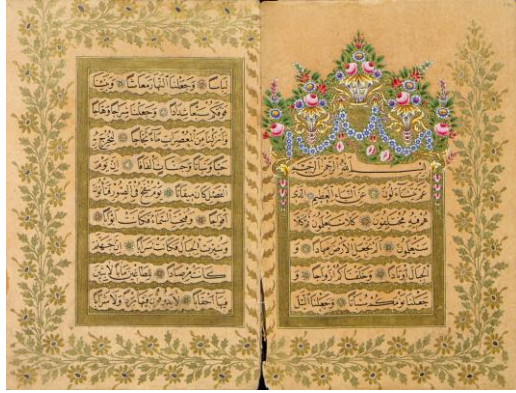 بسم الله الرحمن الرحيم
عم يتساءلون عن النبأ العظيم الذي
هم فيه مختلفون كلا سيعلمون ثم كلا
سيعلمون ألم نجعل الأرض مهادا و
الجبال أوتادا وخلقناكم أزواجا و
جعلنا نومكم سباتا وجعلنا الليل
لباسا وجعلنا النهار معاشا وبنينا
فوقكم سبعا شدادا وجعلنا سراجا وهاجا
وأنزلنا من المعصرات ماء ثجاجا لنخرج به
حبا ونباتا وجنات ألفافا إن يوم
الفصل كان ميقاتا يوم ينفخ في الصور فتأتون
أفواجا وفتحت السماء فكانت أبوابا
وسيرت الجبال فكانت سرابا إن جهنم
كانت مرصادا للطاغين مآبا لابثين
فيها أحقابا لا يذوقون فيها بردا ولا شرابا